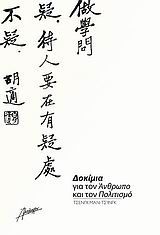 做學問
疑，待人要在有疑處
不疑。胡適
Δοκίμια
για τον Άνθρωπο
και τον Πολιτισμό
ΤΣΕΝΓΚ